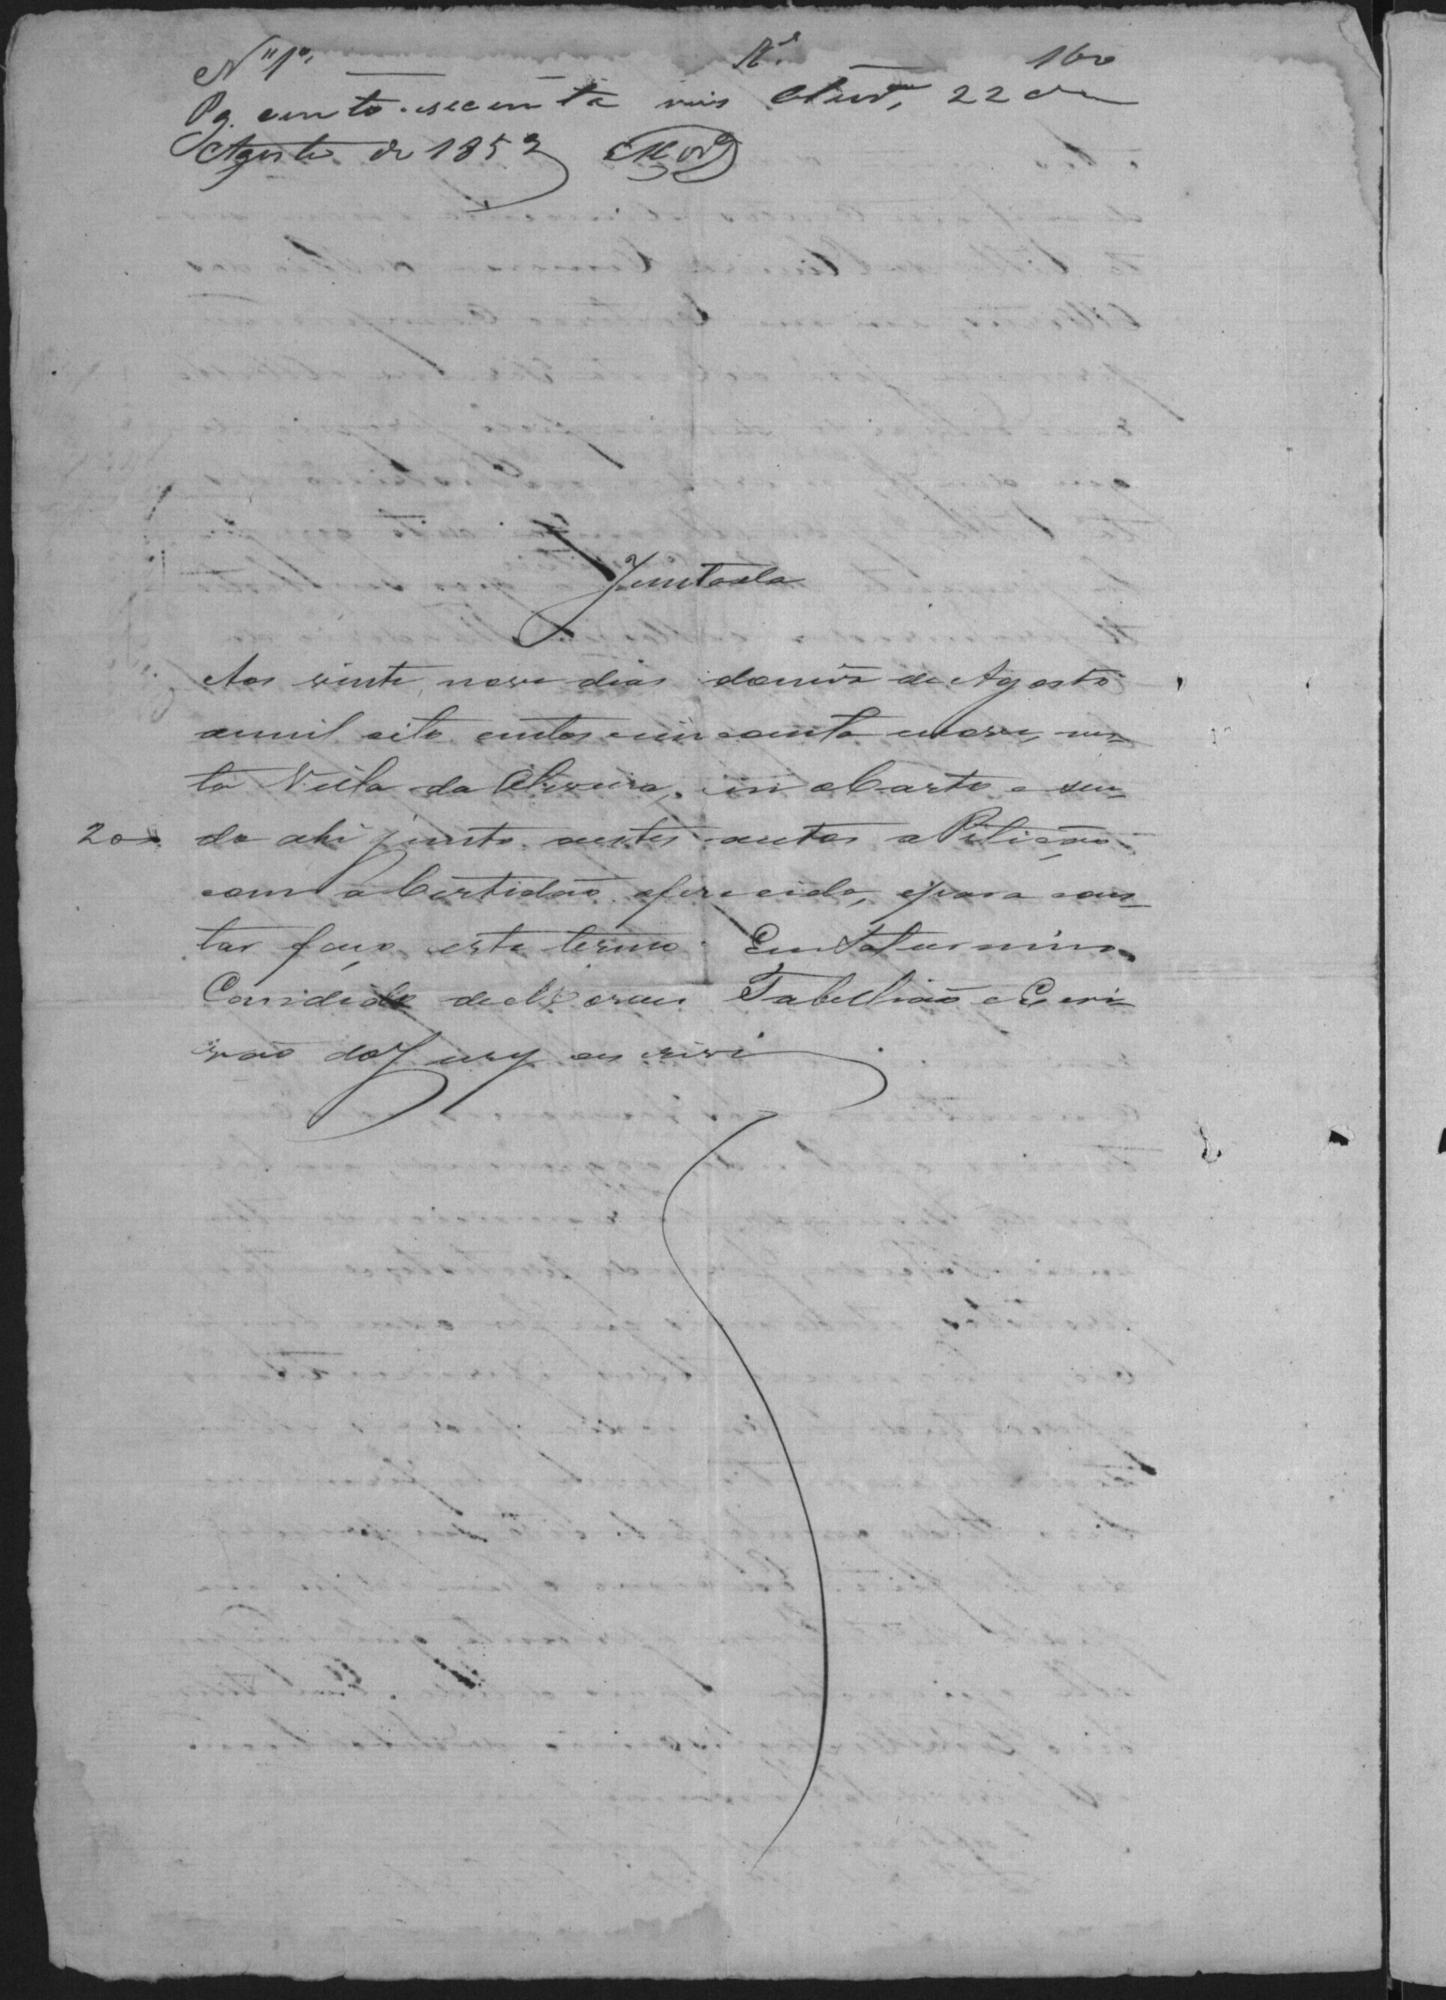 Nº 1º. Rs. 160
Pg. cento e secenta reis Olivrª, 22 de
Agosto de 1859
Juntada
Aos vinte nove dias domes de Agosto
demil oito centos cincoenta enove, nes-
ta Villa da Oliveira, em o Cartorio e sen-
200 do ahi junto aestes autos a Petição
com a Certidão oferecida, epara cons-
tar faço este termo. Eu Saturnino
Candido de Tabellião e Escri-
vão do Jury es crivi